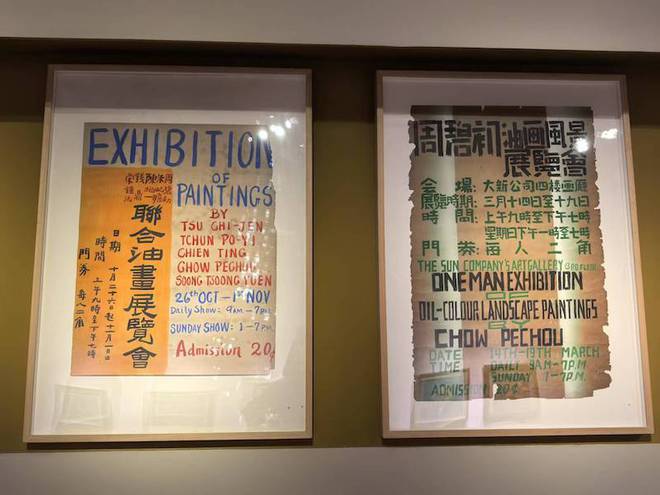 EXHIBITION
OF
PAINTINGS
BY
TSU CHI-JEN
TCHUN PO-YI
CHIEN TING
CHOW PECHOU
SOONG TSOONG YUEN
26TH OCT - 1ST NOV
DAILY SHOW: 9AM - 7PM
SUNDAY SHOW: 1-7PM.
Admission 20¢
聯合油畫展覽會
日期 十月二十六日起十一月一日
時間 上午九時至下午七時
門券 每人二角
周碧初油画風景
展覽會
会場:大新公司四楼画廳
展覽時期:三月十四日至十九日
時間:上午九時至下午七時
星期日下午一時至七時
門券:每人二角
THE SUN COMPANY'S ART GALLERY (3RD FLOOR)
ONE MAN EXHIBITION
OF
OIL-COLOUR LANDSCAPE PAINTINGS
BY
CHOW PECHOU
DATE 14TH-19TH MARCH
TIME DAILY 9AM-7P.M
SUNDAY 1-7P.M.
ADMISSION 20¢